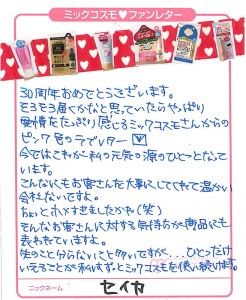 ミックコスモ♥ファンレター
30周年おめでとうございます。
そろそろ届くかなと思っていたらやっぱり
愛情をたっぷり感じるミックコスモさんからの
ピンク色のラブレター
今ではこれが私の元気の源のひとつとなって
います。
こんなにもお客さんを大事にしてくれて温かい
会社ないですよ。
ちょっとホメすぎましたかネ(笑)
そんなお客さんに対する気持ちが商品にも
表われていますよ。
先のこと分らないこと多いですが、…ひとつだけ
いえることが私はずっとミックコスモを使い続けます。
ニックネーム
セイカ